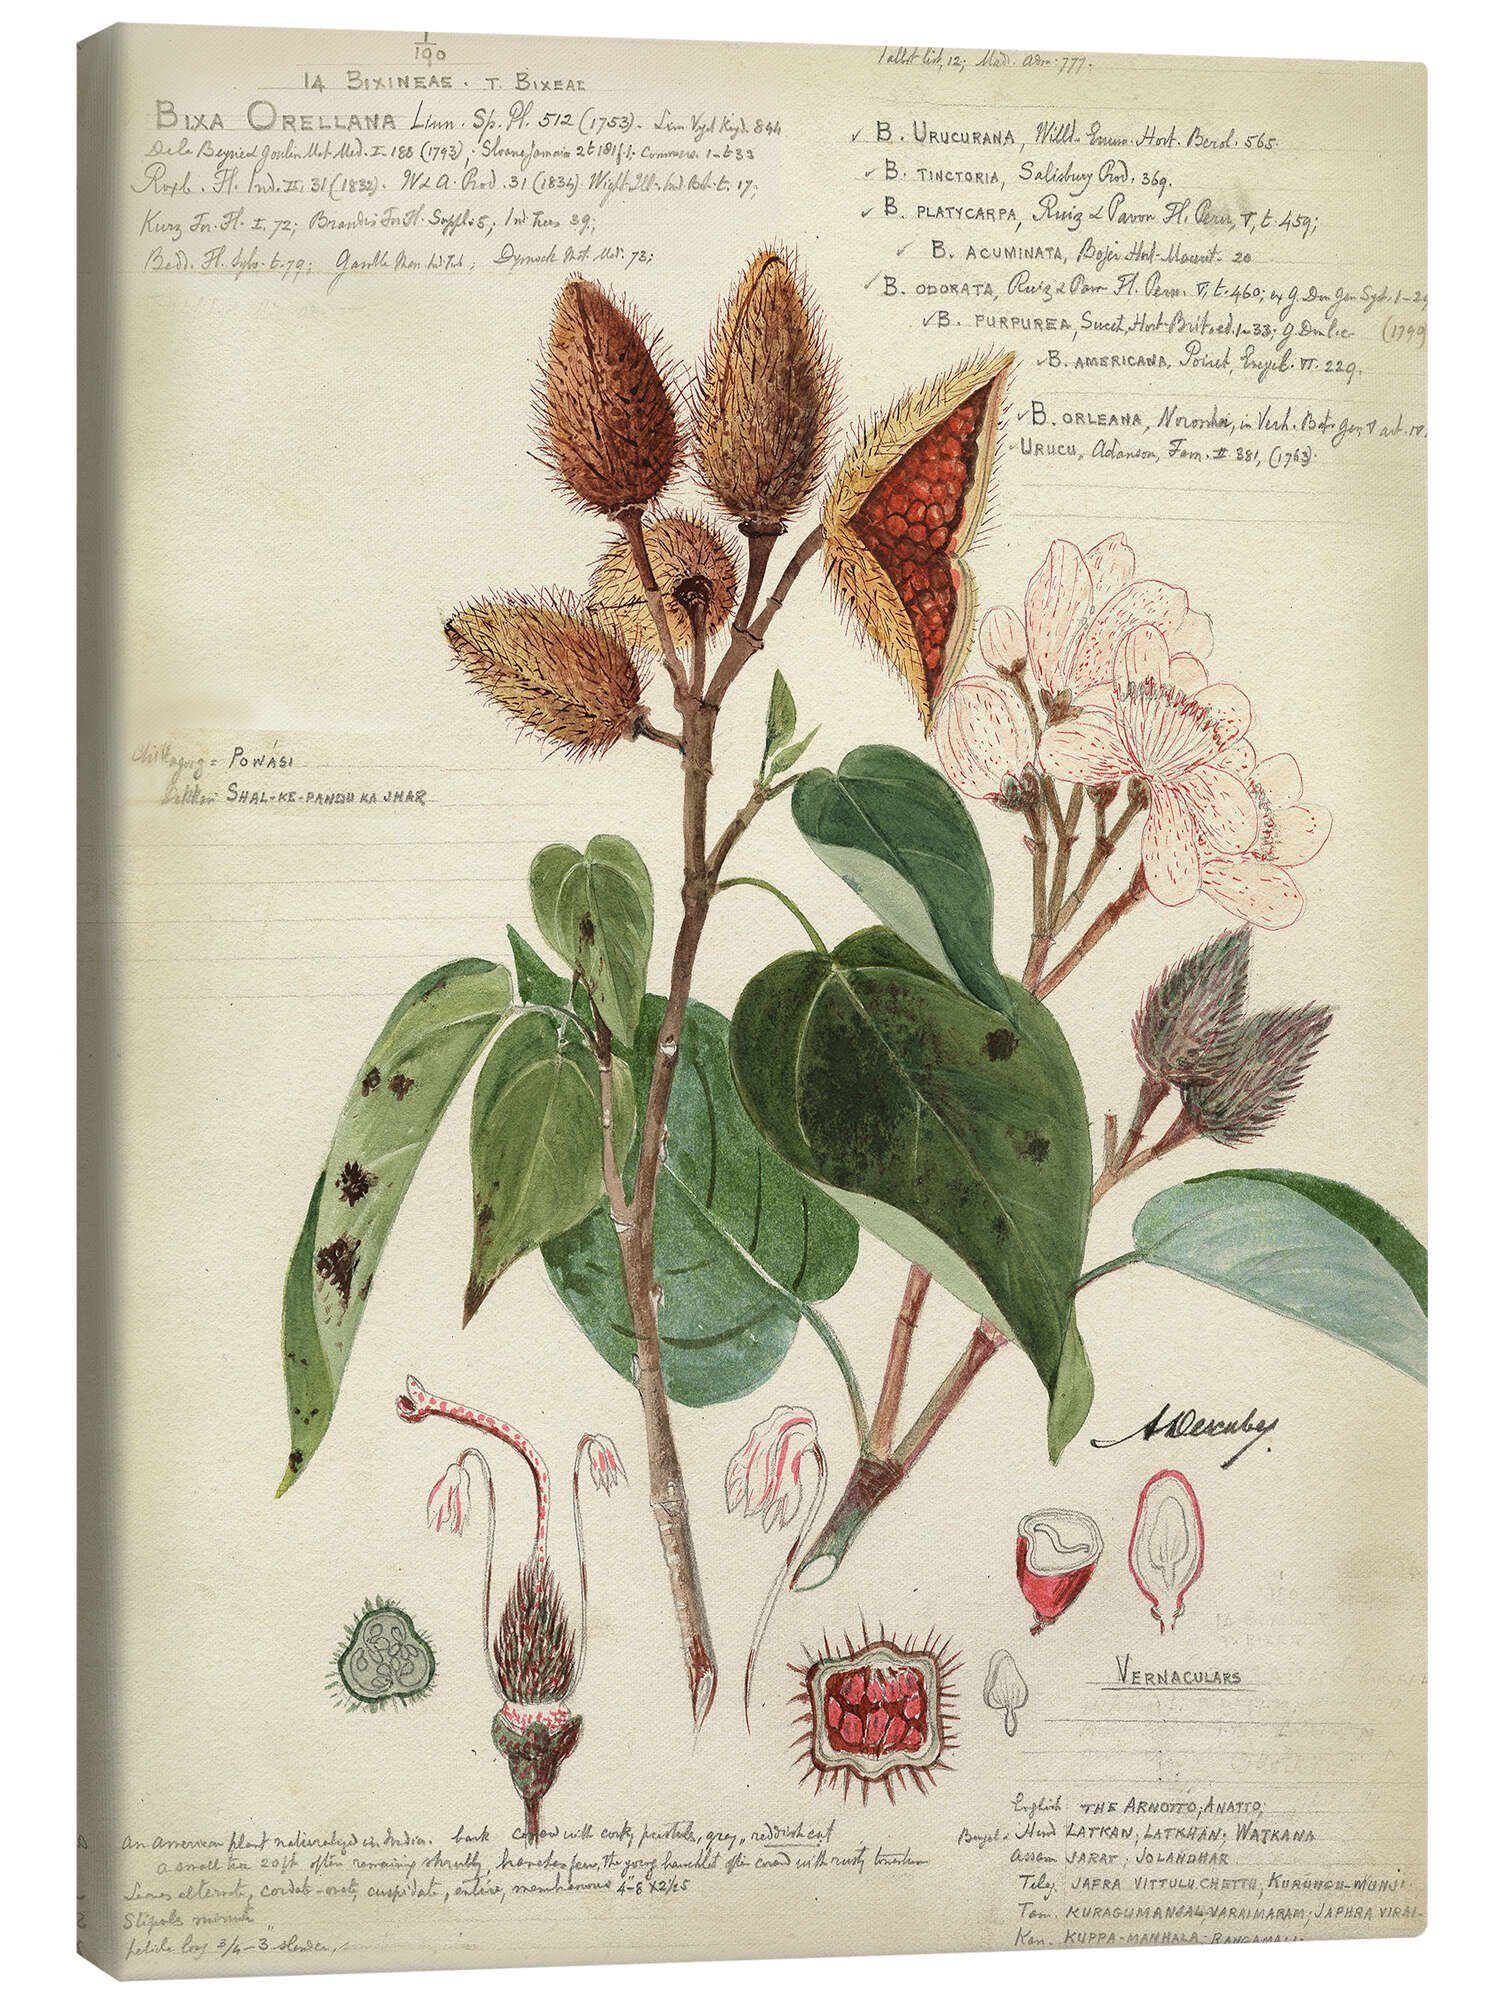 1/190
14 BIXINEAE. T. BIXEAE
BIXA ORELLANA Linn. Sp. Pl. 512 (1753).
I-188 (1793); Sloane Jamaica 2 t 181 f. 1; t-33
Roxb. Fl. Ind. II. 31 (1832). W & A. Prod. 31 (1834) Wight Ill. Ind. Bot. t. 17;
Kurz For. Fl. I. 72; Brandis For. Fl. Suppl. 5; Ind. Trees 39;
Bedd. Fl. Sylv. t. 79; Gamble Man. Ind. Tim.; Dymock Mat. Med. 73;
list, 12; Mad. Adm. 777.
✓ B. URUCURANA, Willd. Enum. Hort. Berol. 565.
✓ B. TINCTORIA, Salisbury Prod. 369.
✓ B. PLATYCARPA, Ruiz & Pavon Fl. Peru, V, t. 459;
✓ B. ACUMINATA, Bojer Hort. Maurit. 20
✓ B. ODORATA, Ruiz & Pav. Fl. Peru. V, t. 460; ex G. Don Gen. Syst. 1-29
✓ B. PURPUREA, Sweet, Hort. Brit. ed. 1-33; G. Don l.c. (1799
✓ B. AMERICANA, Poiret, Encycl. VI. 229.
✓ B. ORLEANA, Noronha, in Verh. Bat. Gen. V art. IV.
URUCU, Adanson, Fam. II 381, (1763).
Chittagong = POWÁSI
Dekkan SHAL-KE-PANDU KA JHAR
VERNACULARS
English THE ARNOTTO; ANATTO;
Bengal & Hind LATKAN; LATKHAN; WATKANA
Assam JARAT; JOLANDHAR
Telg. JAFRA VITTULU CHETTU, KURUNGU-MUNJI
Tam. KURAGUMANJAL, VARAIMARAM; JAPHRA VIRAI-
Kan. KUPPA-MANHALA; RANGAMALI.
An American plant naturalized in India. bark with corky pustules, grey, reddish cut
a small tree 20 ft often remaining shrubby, branches few, the young branchlet often with rusty tomentum
Leaves alternate, cordate-ovate, cuspidate, entire, membranous 4-8 x 2½-5
Stipules minute
petiole long ¾-3 slender,